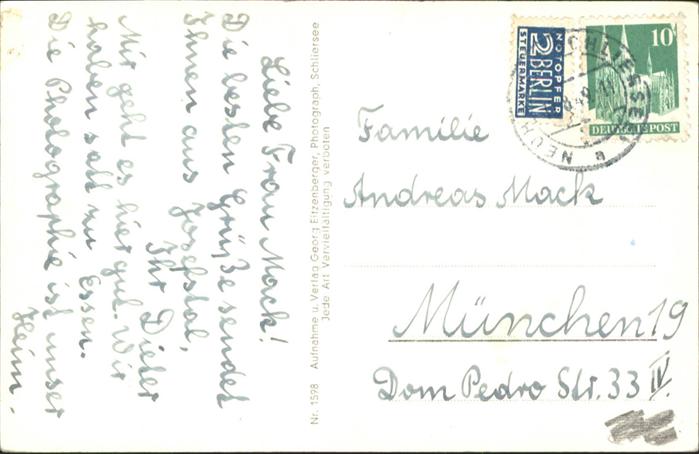 Liebe Frau Mack!
Die besten Grüße sendet
Ihnen aus Josefstal,
Ihr Dieter
Mir geht es hier gut. Wir
haben satt zu Essen.
Die Photographie ist unser
Heim.
Nr. 1598 Aufnahme u. Verlag Georg Eitzenberger, Photograph, Schliersee
Jede Art Vervielfältigung verboten
NOTOPFER
2 BERLIN
STEUERMARKE
10
DEUTSCHE POST
Familie
Andreas Mack
München 19
Dom Pedro Str. 33 IV.